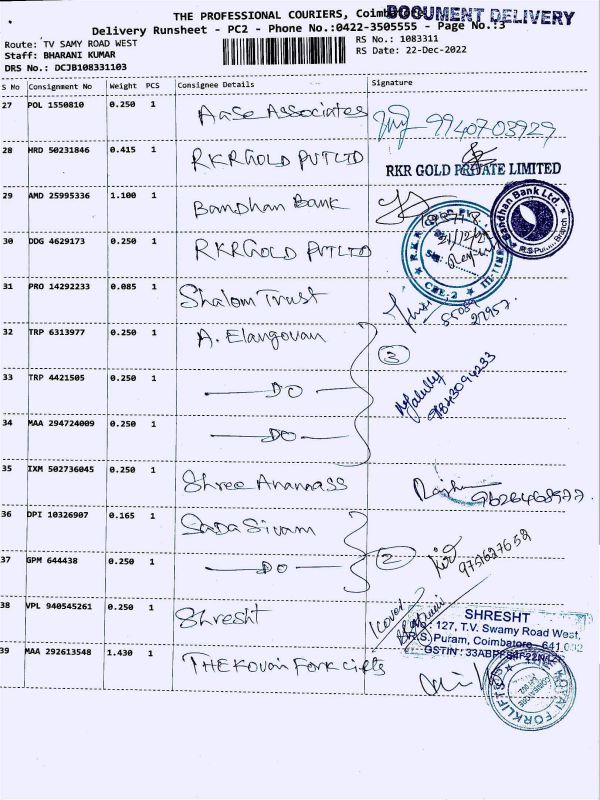 THE PROFESSIONAL COURIERS, Coimbatore
DOCUMENT DELIVERY
Delivery Runsheet - PC2 - Phone No.:0422-3505555 - Page No.:3
Route: TV SAMY ROAD WEST
RS No.: 1083311
Staff: BHARANI KUMAR
RS Date: 22-Dec-2022
DRS No.: DCJB108331103
S No Consignment No Weight PCS Consignee Details Signature
27 POL 1550810 0.250 1 AaSe Associates 9940703929
28 HRD 50231846 0.415 1 RKR GOLD PVT LTD
RKR GOLD PRIVATE LIMITED
29 AMD 25995336 1.100 1 Bandhan Bank
Bandhan Bank Ltd.
30 DDG 4629173 0.250 1 RKR GOLD PVT LTD
31 PRO 14292233 0.085 1 Shalom Trust
32 TRP 6313977 0.250 1 A. Elangovan
3
33 TRP 4421505 0.250 1 DO
9843094233
34 MAA 294724009 0.250 1 DO
35 IXM 502736045 0.250 1 Shree Anannass
36 DPI 10326907 0.165 1 SADA Sivam
2
9751627658
37 GPM 644438 0.250 1 DO
38 VPL 940545261 0.250 1 Shresht
SHRESHT
No : 127, T.V. Swamy Road West,
R.S. Puram, Coimbatore - 641 002
39 MAA 292613548 1.430 1 THE Kovai Fork Lifts